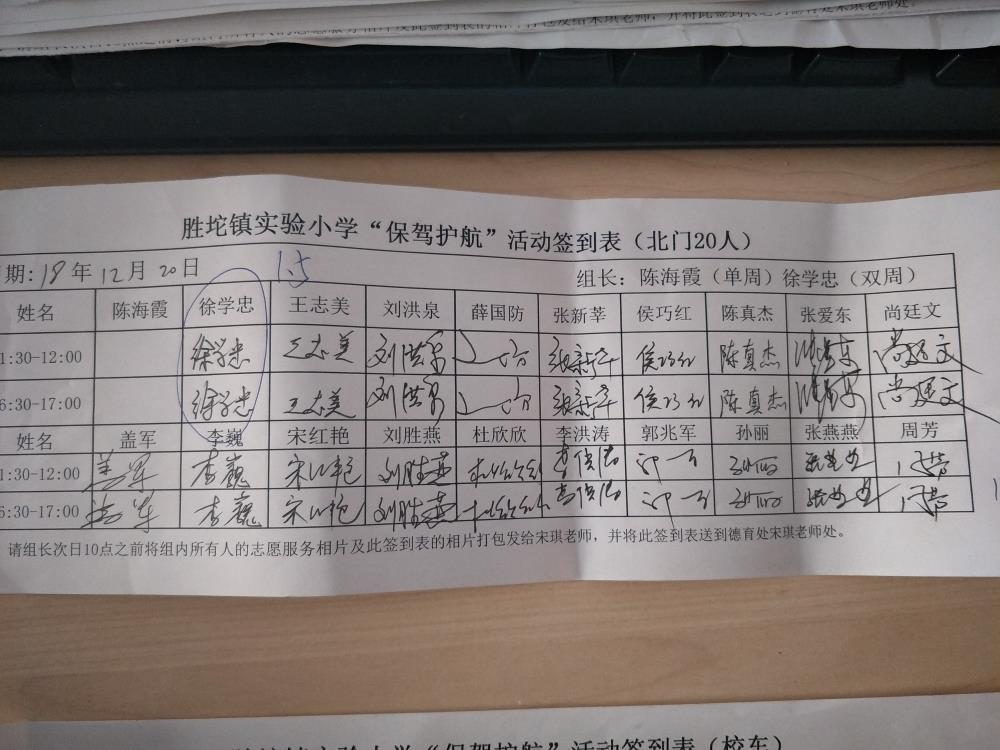 胜坨镇实验小学“保驾护航”活动签到表（北门20人）
期:18年12月20日 1.5 组长：陈海霞（单周）徐学忠（双周）
姓名 陈海霞 徐学忠 王志美 刘洪泉 薛国防 张新莘 侯巧红 陈真杰 张爱东 尚廷文
1:30-12:00 徐学忠 王志美 刘洪泉 张新莘 侯巧红 陈真杰 尚廷文
6:30-17:00 徐学忠 王志美 刘洪泉 张新莘 侯巧红 陈真杰 尚廷文
姓名 盖军 李巍 宋红艳 刘胜燕 杜欣欣 李洪涛 郭兆军 孙丽 张燕燕 周芳
1:30-12:00 盖军 李巍 宋红艳 刘胜燕
6:30-17:00 盖军 李巍 宋红艳 刘胜燕
请组长次日10点之前将组内所有人的志愿服务相片及此签到表的相片打包发给宋琪老师，并将此签到表送到德育处宋琪老师处。
胜坨镇实验小学“保驾护航”活动签到表（校车）